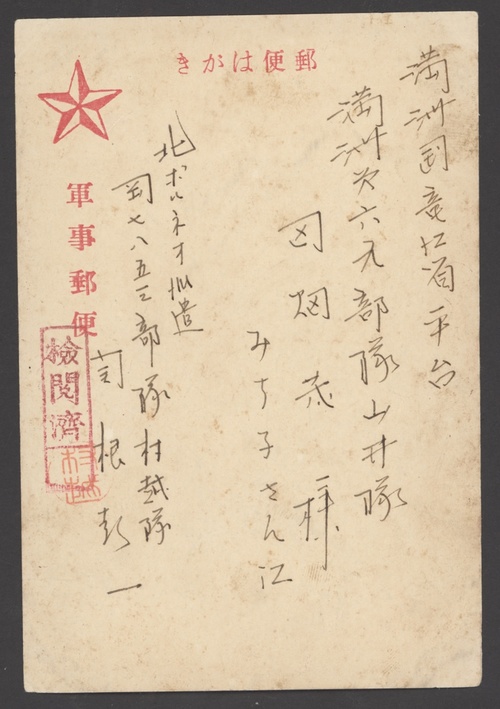 郵便はがき
軍事郵便
検閲濟
満洲国竜江省平台
満洲第六九部隊山井隊
田畑茂様
みち子さん江
北ボルネオ派遣
岡七八五三部隊村越隊
根彰一